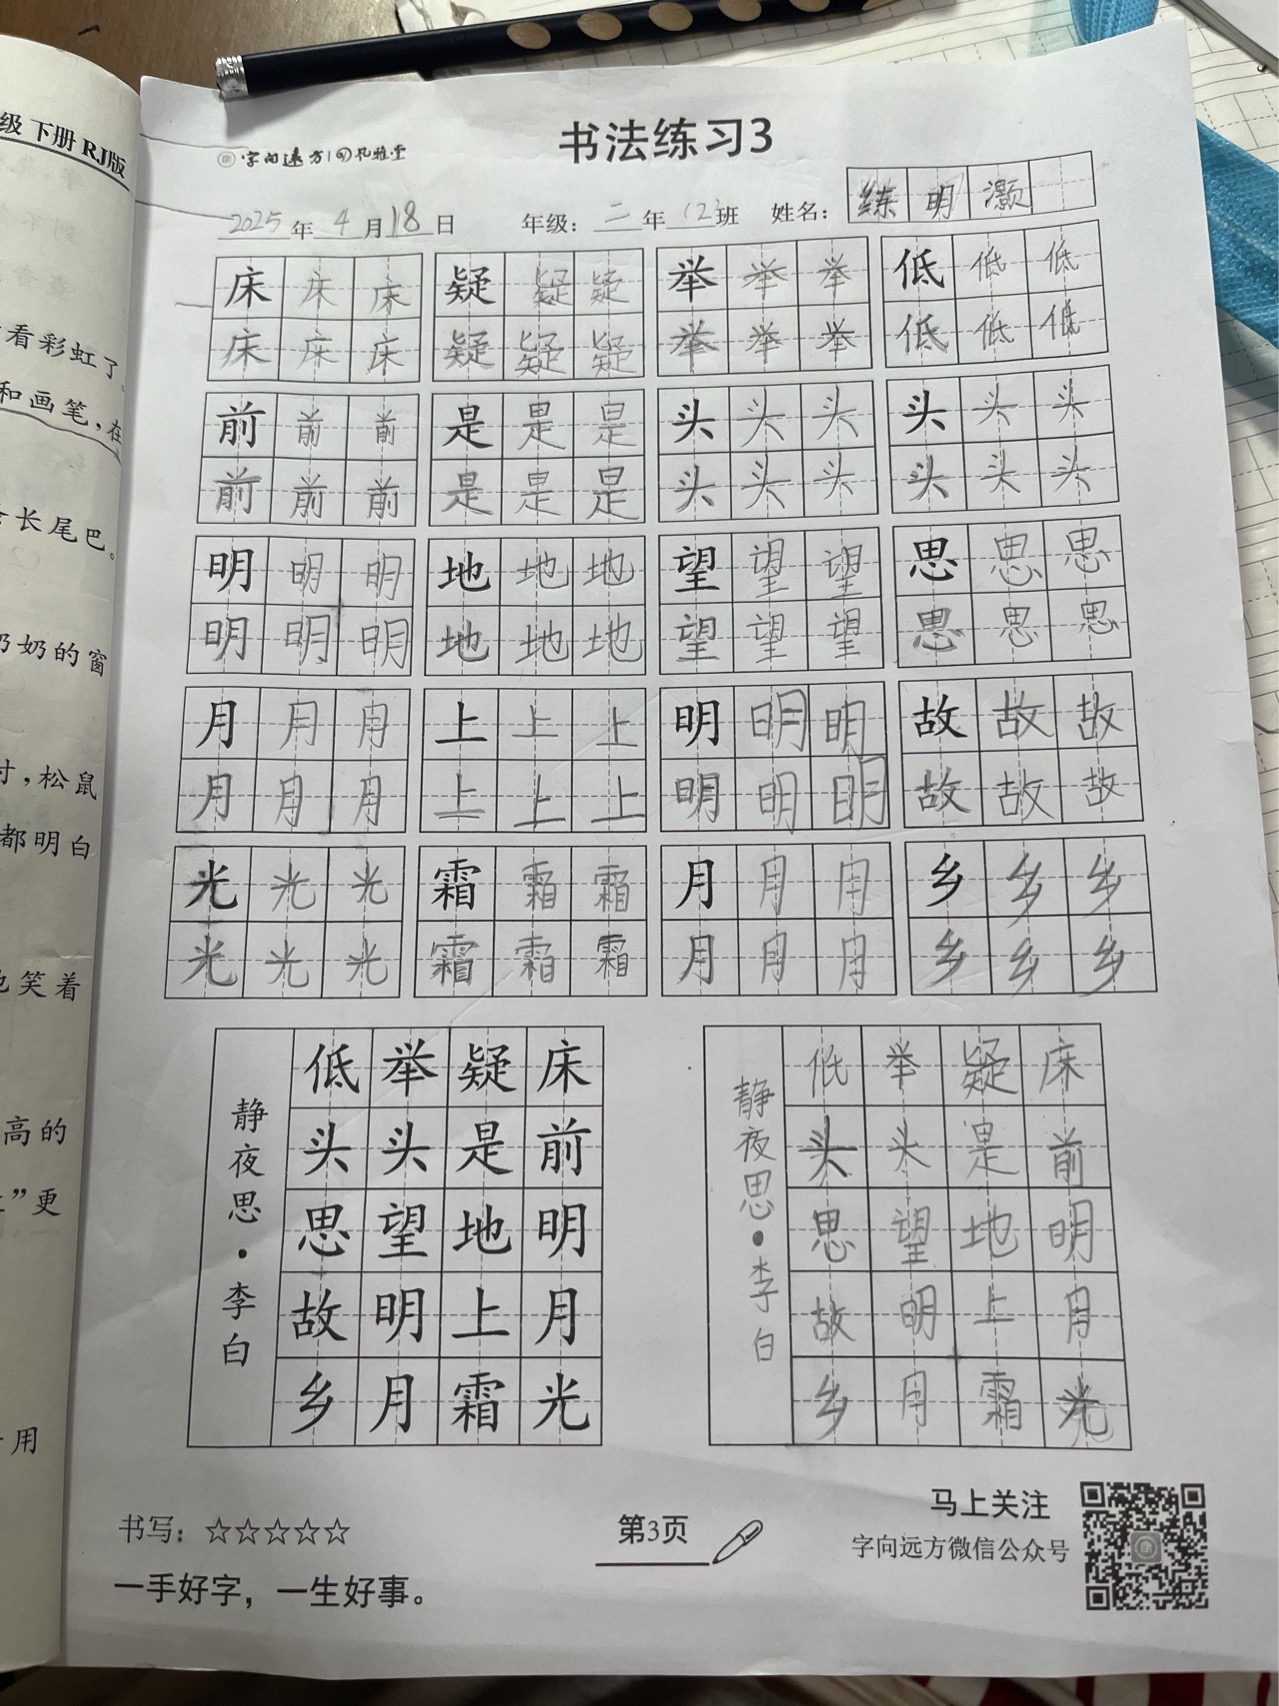 级 下册 RJ版
看彩虹了。
和画笔，在
长尾巴。
奶奶的窗
时，松鼠
都明白
地笑着
高的
”更
用
字向远方 孔雅堂
书法练习3
2025年4月18日 年级：二年(2)班 姓名：练明灏
床床床 疑疑疑 举举举 低低低
床床床 疑疑疑 举举举 低低低
前前前 是是是 头头头 头头头
前前前 是是是 头头头 头头头
明明明 地地地 望望望 思思思
明明明 地地地 望望望 思思思
月月月 上上上 明明明 故故故
月月月 上上上 明明明 故故故
光光光 霜霜霜 月月月 乡乡乡
光光光 霜霜霜 月月月 乡乡乡
床前明月光
疑是地上霜
举头望明月
低头思故乡
静夜思·李白
床前明月光
疑是地上霜
举头望明月
低头思故乡
静夜思·李白
书写：☆☆☆☆☆
一手好字，一生好事。
第3页
马上关注
字向远方微信公众号